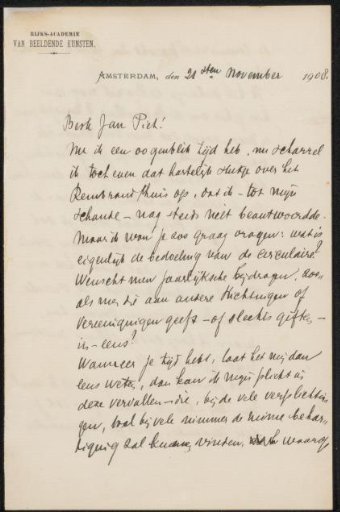 RIJKS-ACADEMIE
VAN BEELDENDE KUNSTEN.
AMSTERDAM, den 21sten November 1908.
Beste Jan Piet!
Nu ik een oogenblik tijd heb, nu scharrel
ik toch even dat hartelijk over het
Rembrandthuis op, dat ik - tot mijn
schande - nog steeds niet beantwoordde.
Maar ik wou je zoo graag vragen: wat is
eigenlijk de bedoeling van de circulaire?
Wenscht men jaarlijksche bijdragen, zoo-
als men die aan andere stichtingen of
vereenigingen geeft - of slechts giften-
in-eens?
Wanneer je tijd hebt, laat het mij dan
eens weten, dan kan ik mijn plicht in
deze vervullen - die, bij de vele verplichtin-
gen, wel bij velen nimmer de behar-
tiging zal kunnen vinden, waarop